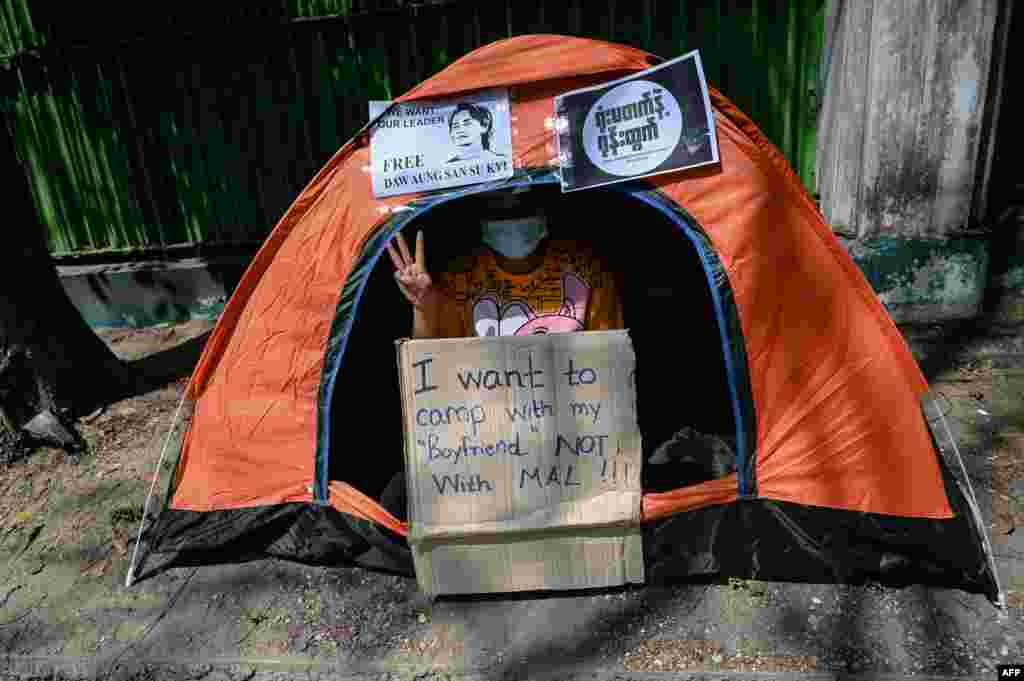 WE WANT
OUR LEADER
FREE
DAW AUNG SAN SU KYI
ရုံးမတက်နဲ့
ရုန်းထွက်
I want to
camp with my
"Boyfriend" NOT
With MAL !!!
AFP